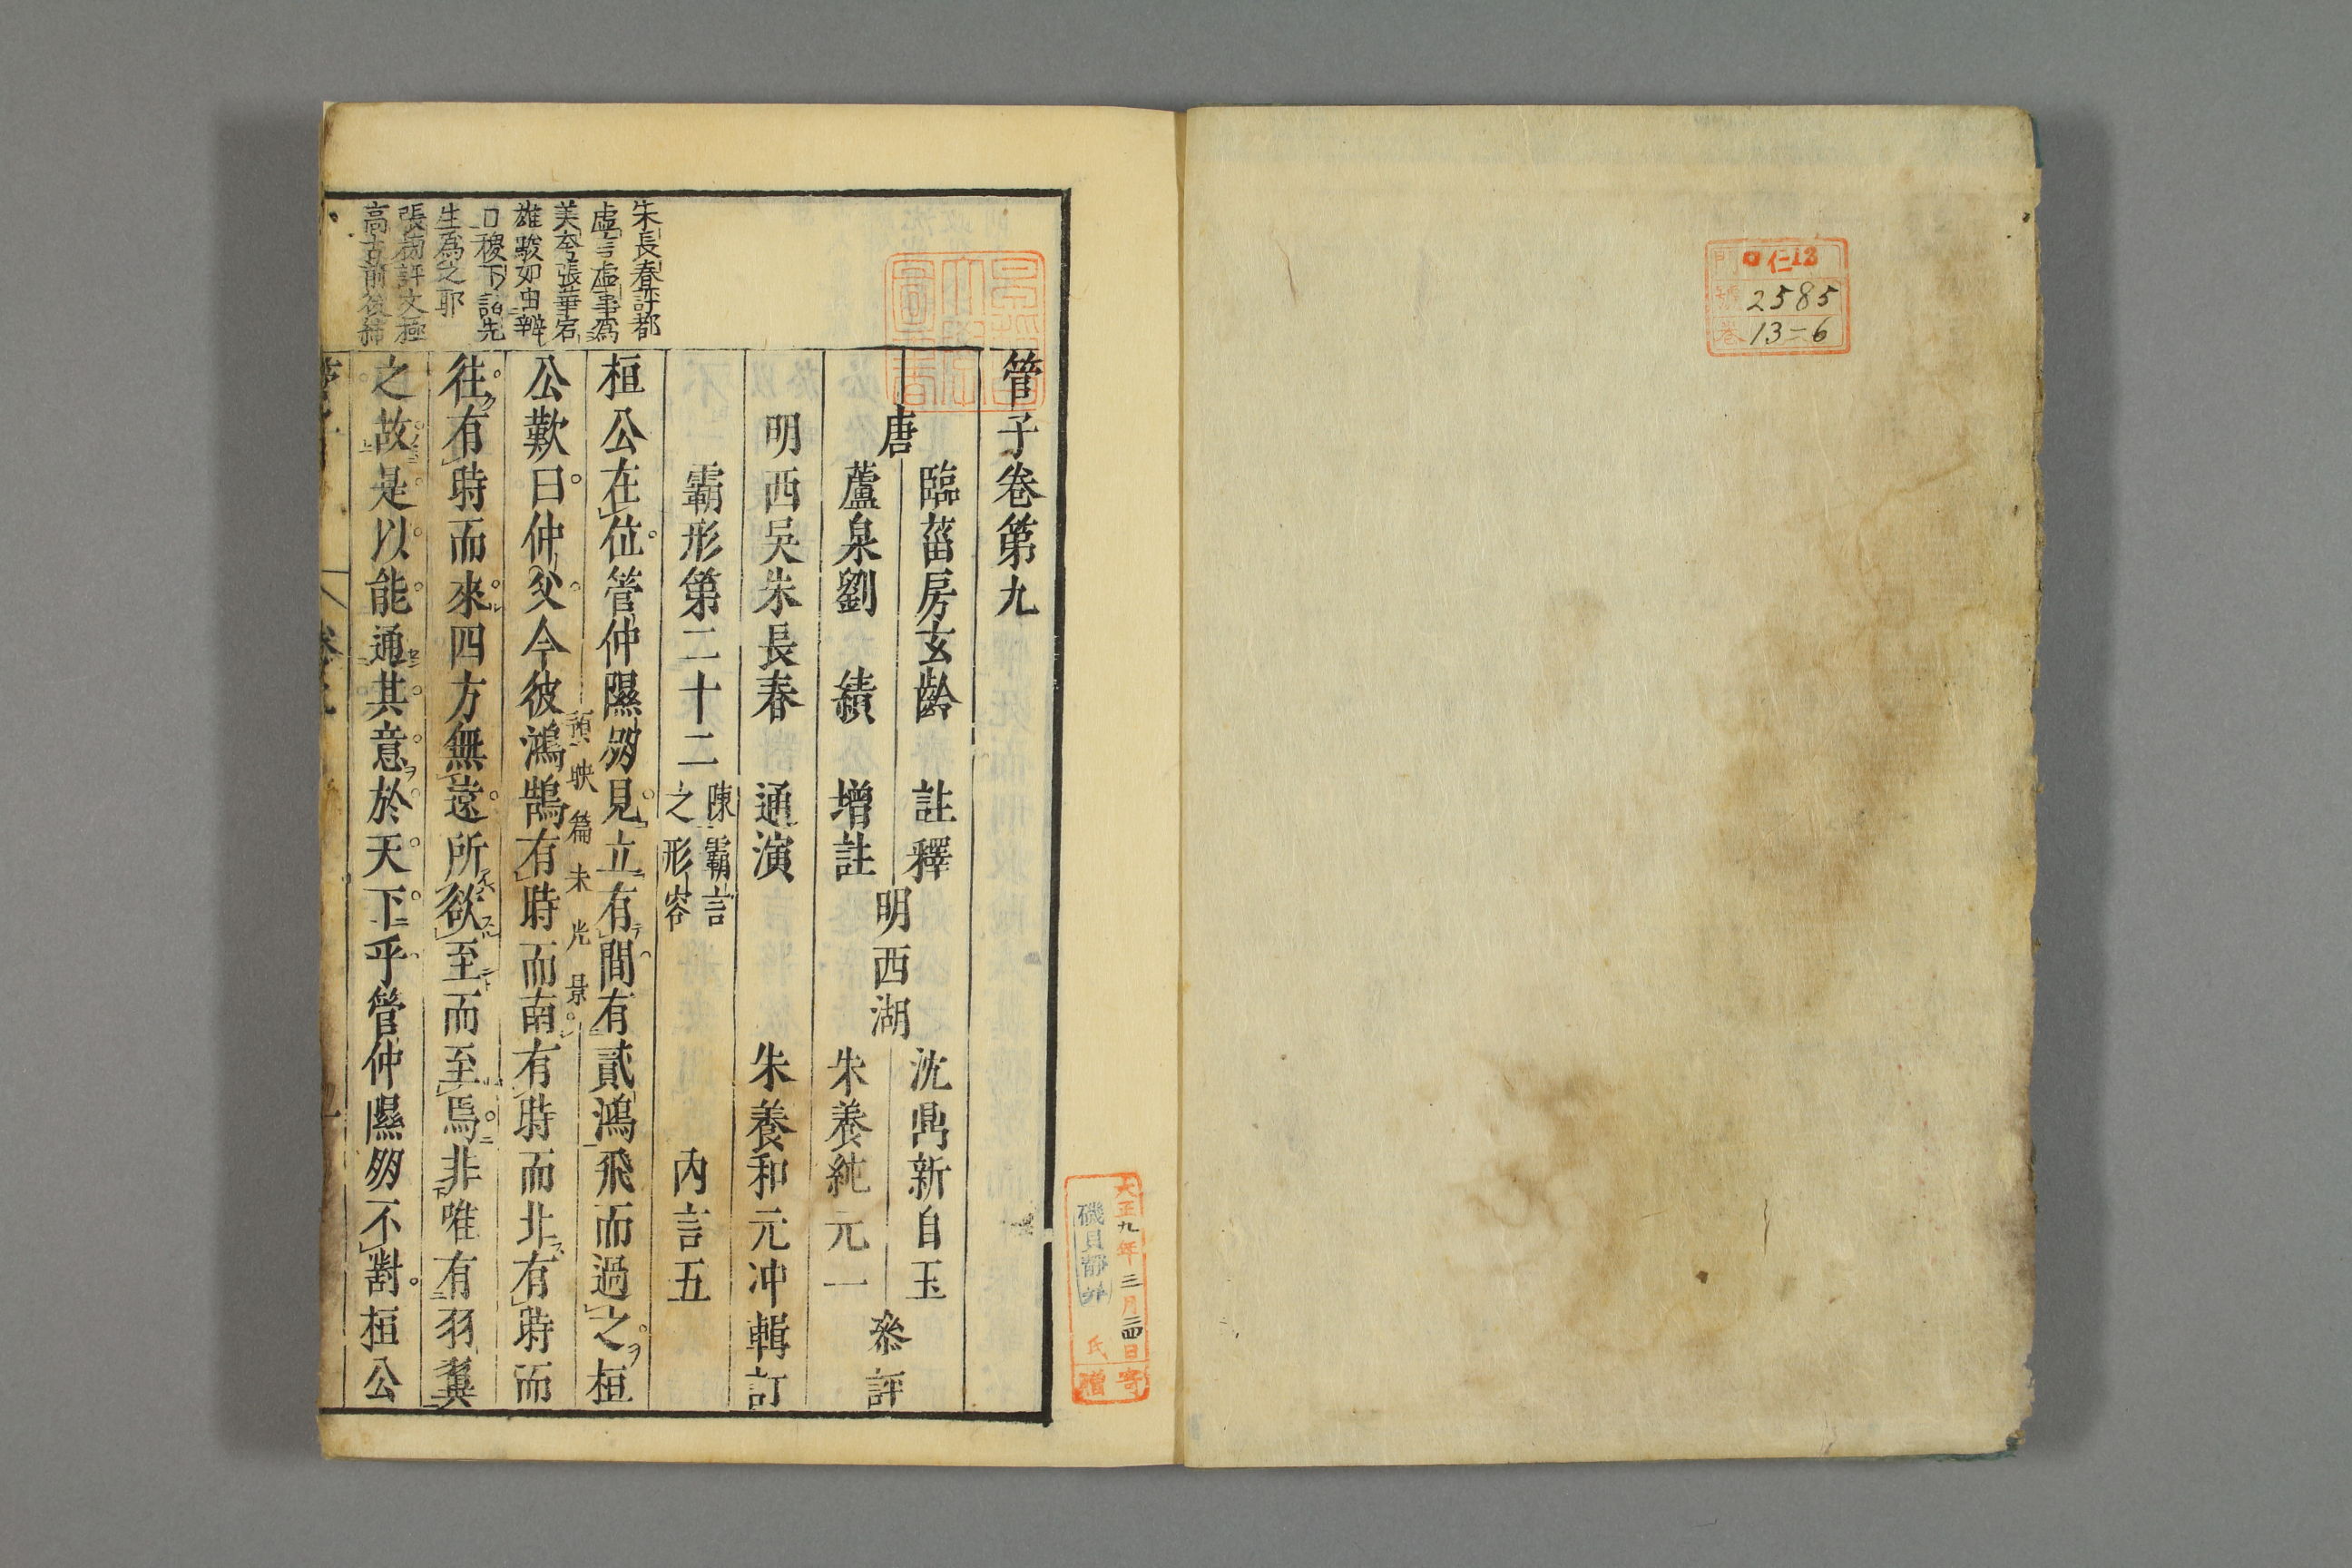 仁13
2585
13-6
大正九年三月二四日寄贈
磯貝静 氏
管子卷第九
唐
臨菑房玄齡 註釋
蘆泉劉 績 增註
明西湖
沈鼎新自玉
朱養純元一
叅評
明西吳朱長春 通演 朱養和元冲輯訂
霸形第二十二 陳霸言之形容 內言五
桓公在位管仲隰朋見立有間有貳鴻飛而過之桓
預映篇末光景
公歎曰仲父今彼鴻鵠有時而南有時而北有時而
往有時而來四方無遠所欲至而至焉非唯有羽翼
之故是以能通其意於天下乎管仲隰朋不對桓公
朱長春評都
虛言虛事為
美夸張華宕
雄駿如虫辨
口稷下諸先
生為之耶
張榜評文極
高古前後締